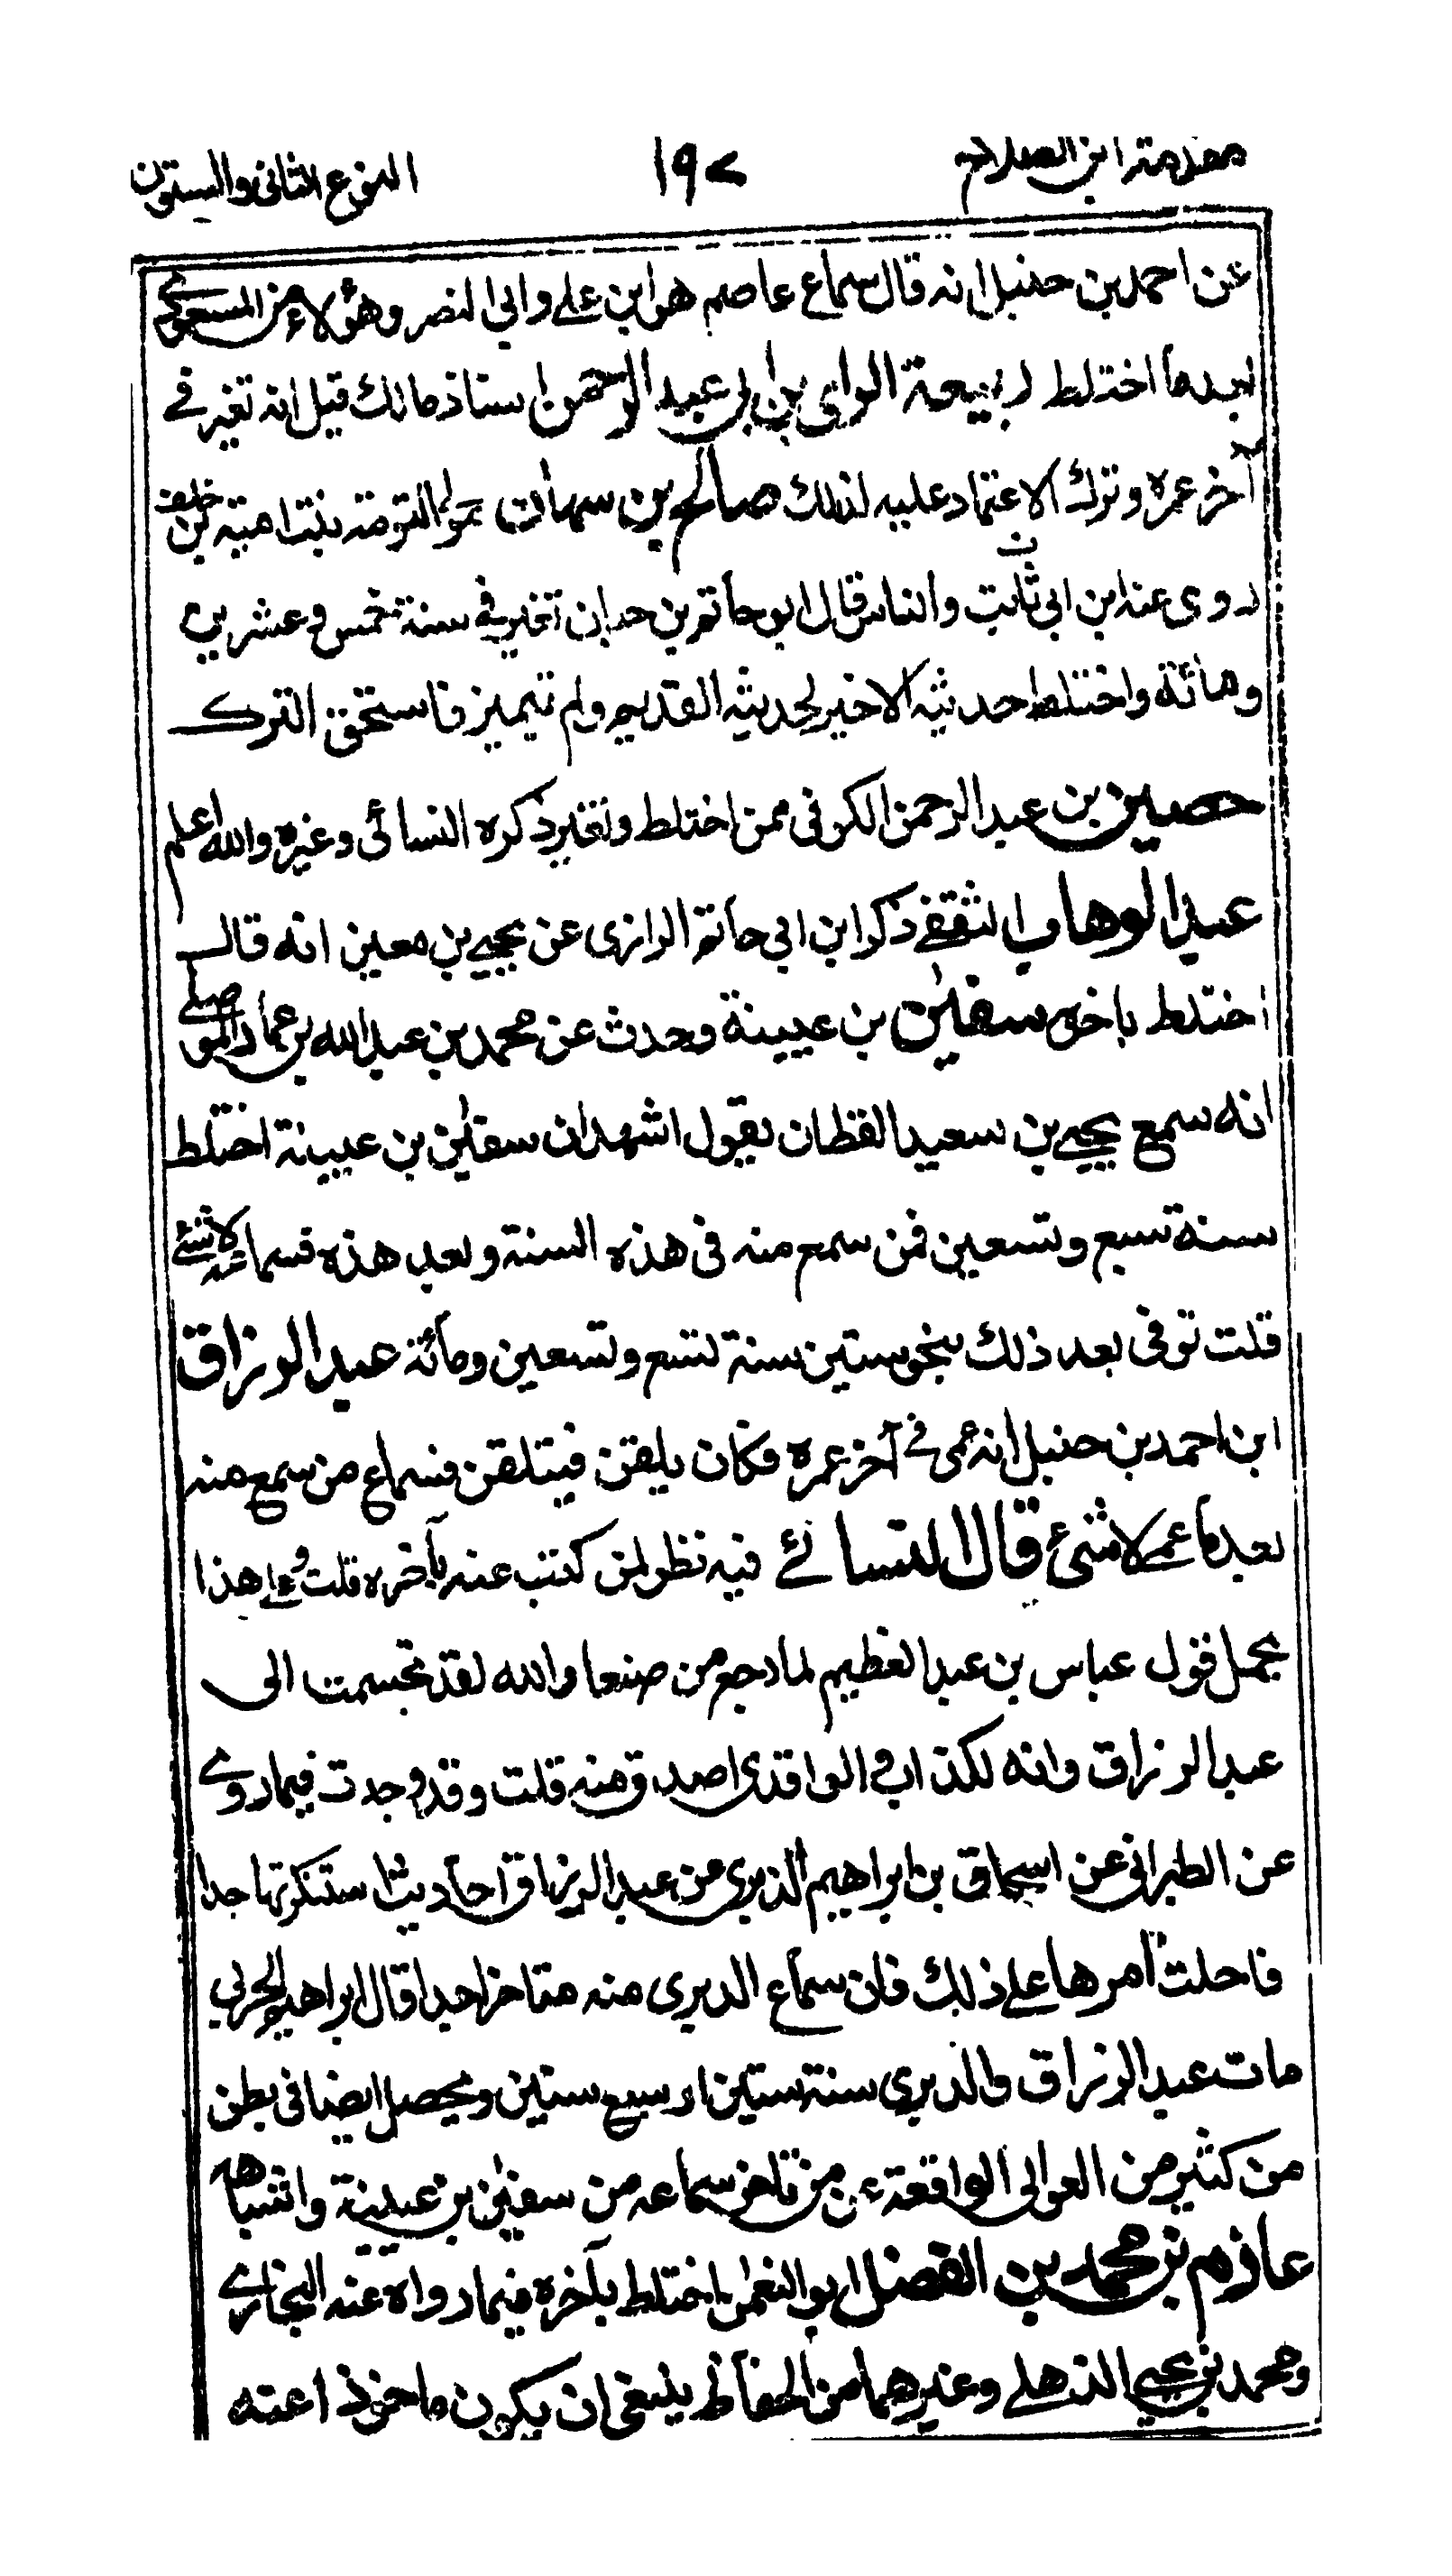 مقدمة ابن الصلاح ١٩٢ النوع الثاني والستون
عن احمد بن حنبل انه قال سماع عاصم هو ابن علي وابي النضر وهؤلاء من المسعودي
بعد ما اختلط ربيعة الراي بن ابي عبد الرحمن استاذ مالك قيل انه تغير في
آخر عمره وترك الاعتماد عليه لذلك صالح بن سهان مولى التومة بنت امية بن خلف
روى عنه ابن ابي ثابت والناس قال ابو حاتم بن حبان تغير في سنة خمس وعشرين
ومائة واختلط حديثه الاخير بحديثه القديم ولم يتميز فاستحق الترك
حصين بن عبد الرحمن الكوفي ممن اختلط وتغير ذكره النسائي وغيره والله اعلم
عبد الوهاب الثقفي ذكر ابن ابي حاتم الرازي عن يحيى بن معين انه قال
اختلط باخره سفيٰن بن عيينة وحدث عن محمد بن عبد الله بن عمار الموصلي
انه سمع يحيى بن سعيد القطان يقول اشهد ان سفيٰن بن عيينة اختلط
سنة سبع وتسعين فمن سمع منه في هذه السنة وبعد هذه فسماعه لا شئ
قلت توفى بعد ذلك بنحو ستين سنة تسع وتسعين ومائة عبد الرزاق
ابن احمد بن حنبل انه عمى في آخر عمره فكان يلقن فيتلقن فسماع من سمع منه
بعد ما عمى لا شئ قال النسائي فيه نظر لمن كتب عنه بآخره قلت وعلى هذا
يحمل قول عباس بن عبد العظيم لما رجع من صنعا والله لقد تجسمت الى
عبد الرزاق وانه لكذاب والواقدى اصدق منه قلت وقد وجدت فيما روى
عن الطبراني عن اسحاق بن ابراهيم الدبرى من عبد الرزاق احاديث استنكرتها جدا
فاحلت امرها على ذلك فان سماع الدبرى منه متاخرا جدا قال ابراهيم الحربي
مات عبد الرزاق والدبرى سنة ستين او سبع ستين ويحصل ايضا في بطن
من كثير من العوالى الواقعة عن من تاخر سماعه من سفيٰن بن عيينة واشباهه
عازم بن محمد بن الفضل ابو النعمٰن اختلط بآخره فيما رواه عنه البخارى
ومحمد بن يحيى الذهلى وغيرهما من الحفاظ ينبغى ان يكون ماخوذا عنه